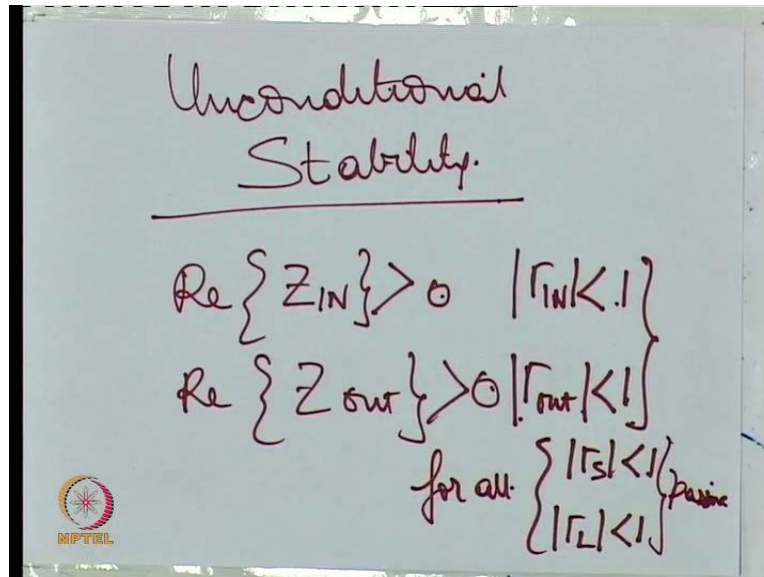 Unconditional
Stability.
Re { Z_IN } > 0 |Γ_IN| < 1 }
Re { Z_out } > 0 |Γ_out| < 1 }
for all { |Γ_S| < 1 } passive
{ |Γ_L| < 1 }
NPTEL